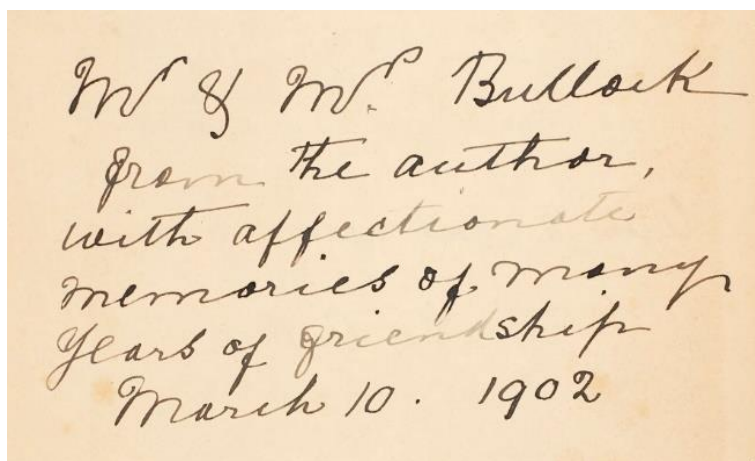 Mr & Mrs. Bullock
from the author,
with affectionate
memories of many
years of friendship
March 10. 1902